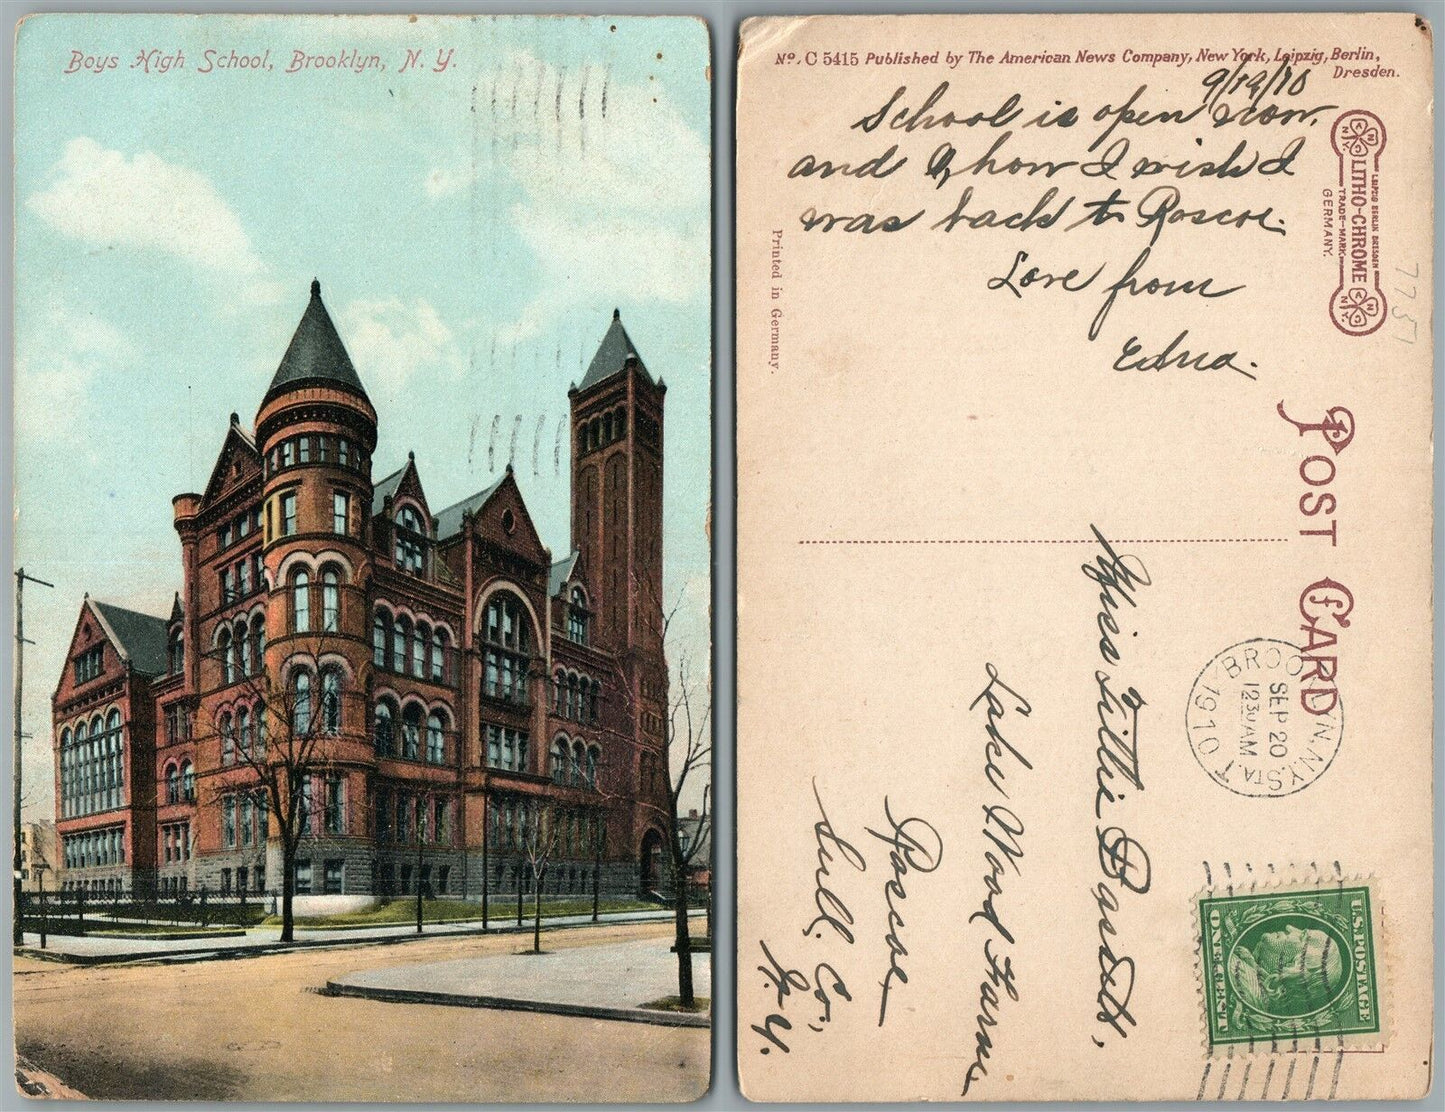 Boys High School, Brooklyn, N. Y.
No. C 5415 Published by The American News Company, New York, Leipzig, Berlin,
Dresden.
9/19/10
School is open now.
and O, how I wish I
was back to Roscoe.
Love from
Edna.
Printed in Germany.
A N C N.Y.
LITHO-CHROME
LEIPZIG BERLIN DRESDEN
TRADE-MARK
GERMANY.
A N C N.Y.
POST CARD
BROOKLYN, N.Y. STA. T
SEP 20
12 30 AM
1910
Miss Tillie Bassett,
Lake Wood Farm
Roscoe,
Sull. Co.,
N.Y.
U.S. POSTAGE
ONE CENT